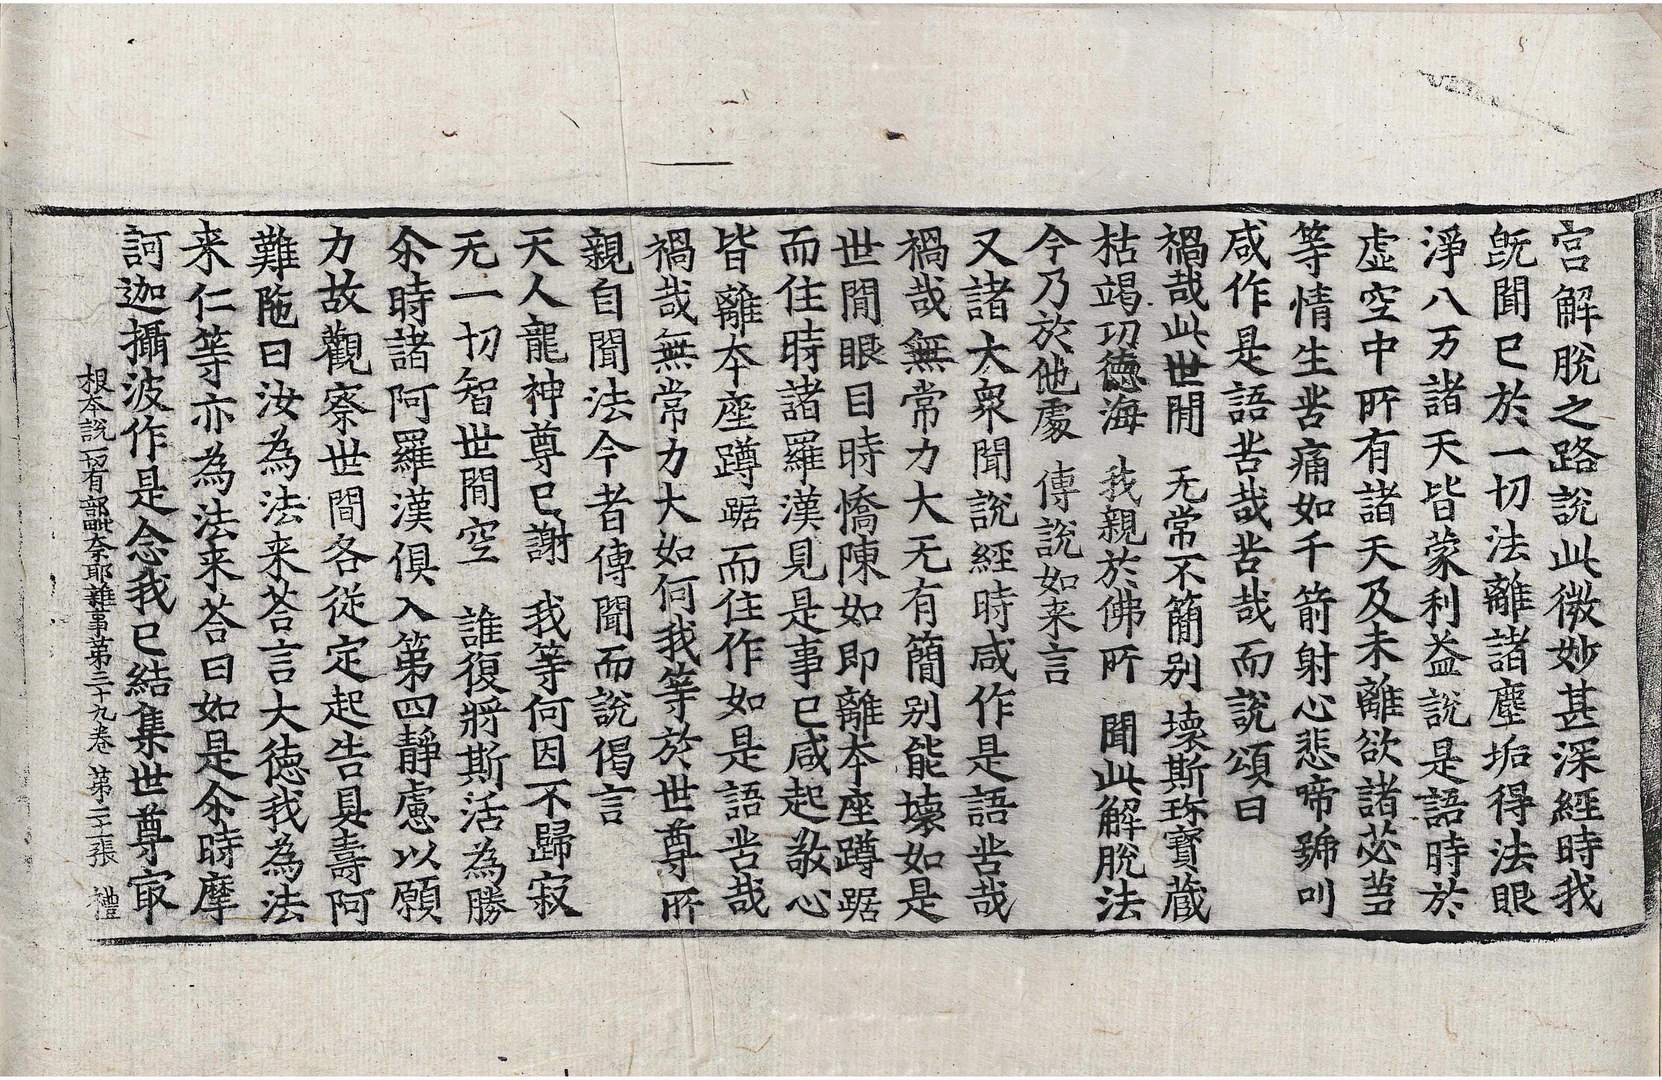 宫解脫之路說此微妙甚深經時我
旣聞已於一切法離諸塵垢得法眼
淨八万諸天皆蒙利益說是語時於
虛空中所有諸天及未離欲諸苾芻
等情生苦痛如千箭射心悲啼號叫
咸作是語苦哉苦哉而說頌曰
禍哉此世閒　无常不簡别　壞斯珎寶蔵
枯竭功德海　我親於佛所　聞此解脫法
今乃於他處　傳說如来言
又諸大衆聞說經時咸作是語苦哉
禍哉無常力大无有簡别能壞如是
世閒眼目時憍陳如即離本座蹲踞
而住時諸羅漢見是事已咸起敬心
皆離本座蹲踞而住作如是語苦哉
禍哉無常力大如何我等於世尊所
親自聞法今者傳聞而說偈言
天人龍神尊已謝　我等何因不歸寂
无一切智世閒空　誰復將斯活為勝
尒時諸阿羅漢俱入第四靜慮以願
力故觀察世間各從定起告具壽阿
難陁曰汝為法来荅言大德我為法
来仁等亦為法来荅曰如是尒時摩
訶迦攝波作是念我已結集世尊㝡
根本說一切有部毗奈耶雜事第三十九卷　第二十張　禮